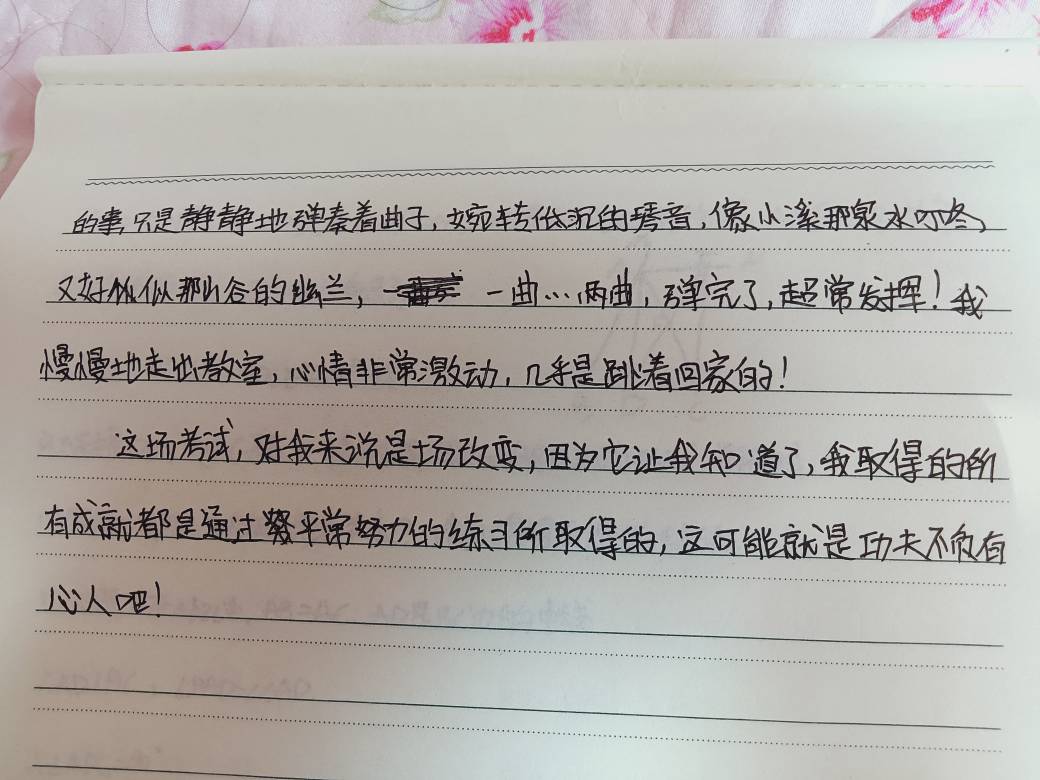 的事,只是静静地弹奏着曲子,婉转低沉的琴音,像小溪那泉水叮咚,
又好似似那山谷的幽兰, 一曲…两曲,弹完了,超常发挥!我
慢慢地走出教室,心情非常激动,几乎是跳着回家的!
这场考试,对我来说是场改变,因为它让我知道了,我取得的所
有成就都是通过平常努力的练习所取得的,这可能就是功夫不负有
心人吧!